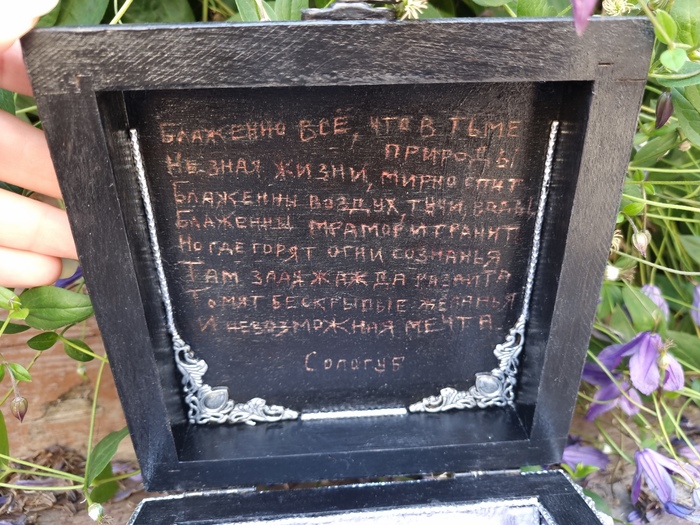 БЛАЖЕННО ВСЁ, ЧТО В ТЬМЕ
ПРИРОДЫ
НЕ ЗНАЯ ЖИЗНИ, МИРНО СПИТ
БЛАЖЕННЫ ВОЗДУХ, ТУЧИ, ВОДЫ
БЛАЖЕННЫ МРАМОР И ГРАНИТ
НО ГДЕ ГОРЯТ ОГНИ СОЗНАНЬЯ
ТАМ ЗЛАЯ ЖАЖДА РАЗЛИТА
ТОМЯТ БЕСКРЫЛЫЕ ЖЕЛАНЬЯ
И НЕВОЗМОЖНАЯ МЕЧТА
СОЛОГУБ